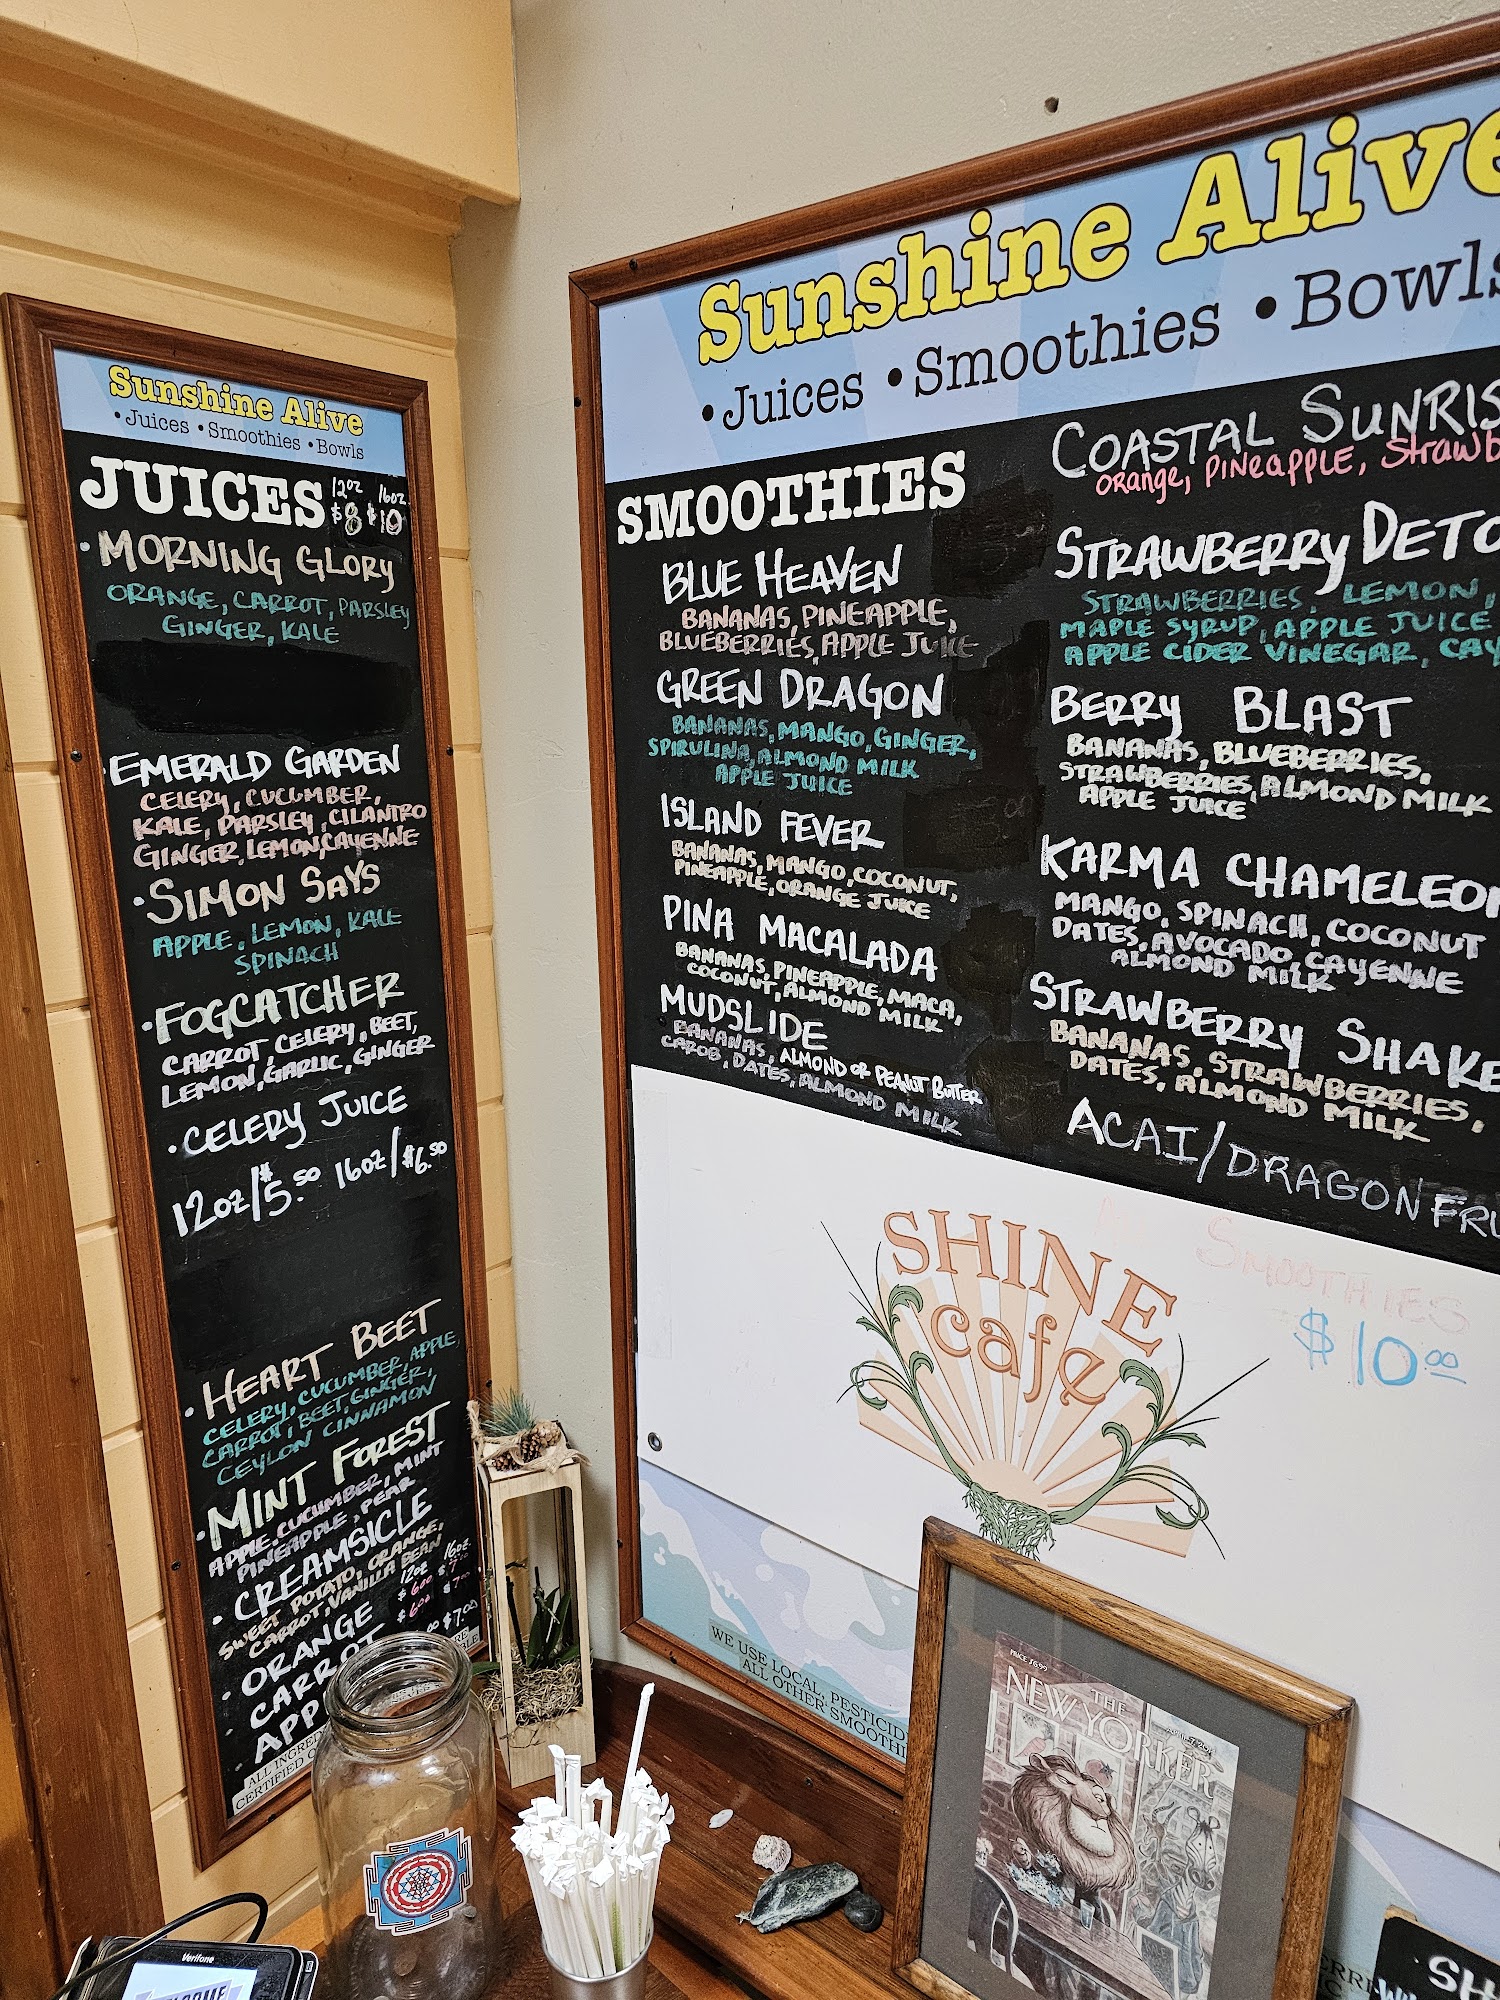 Sunshine Alive
•Juices •Smoothies •Bowls
JUICES
12oz 16oz.
$8 $10
•MORNING GLORY
ORANGE, CARROT, PARSLEY
GINGER, KALE
EMERALD GARDEN
CELERY, CUCUMBER,
KALE, PARSLEY, CILANTRO
GINGER, LEMON, CAYENNE
•SIMON SAYS
APPLE, LEMON, KALE
SPINACH
•FOGCATCHER
CARROT, CELERY, BEET,
LEMON, GARLIC, GINGER
•CELERY JUICE
12oz/$5.50 16oz/$6.50
•HEART BEET
CELERY, CUCUMBER, APPLE,
CARROT, BEET, GINGER,
CEYLON CINNAMON
•MINT FOREST
APPLE, CUCUMBER, MINT
PINEAPPLE, PEAR
•CREAMSICLE
SWEET POTATO, ORANGE,
CARROT, VANILLA BEAN
12oz 16oz.
•ORANGE $6.00
•CARROT $6.00 $7.00
•APP $7.00
ALL INGRE
CERTIFIED O
Sunshine Alive
•Juices •Smoothies •Bowls
SMOOTHIES
BLUE HEAVEN
BANANAS, PINEAPPLE,
BLUEBERRIES, APPLE JUICE
GREEN DRAGON
BANANAS, MANGO, GINGER,
SPIRULINA, ALMOND MILK
APPLE JUICE
ISLAND FEVER
BANANAS, MANGO, COCONUT,
PINEAPPLE, ORANGE JUICE
PINA MACALADA
BANANAS, PINEAPPLE, MACA,
COCONUT, ALMOND MILK
MUDSLIDE
BANANAS, ALMOND OR PEANUT BUTTER
CAROB, DATES, ALMOND MILK
COASTAL SUNRIS
ORANGE, PINEAPPLE, STRAWB
STRAWBERRY DETO
STRAWBERRIES, LEMON,
MAPLE SYRUP, APPLE JUICE
APPLE CIDER VINEGAR, CAY
BERRY BLAST
BANANAS, BLUEBERRIES,
STRAWBERRIES, ALMOND MILK
APPLE JUICE
KARMA CHAMELEON
MANGO, SPINACH, COCONUT
DATES, AVOCADO, CAYENNE
ALMOND MILK
STRAWBERRY SHAKE
BANANAS, STRAWBERRIES,
DATES, ALMOND MILK
ACAI/DRAGON FRU
ALL SMOOTHIES
$10.00
SHINE
cafe
WE USE LOCAL, PESTICID
ALL OTHER SMOOTHI
PRICE $6.99
THE
NEW YORKER
Verifone
WELCOME
SH